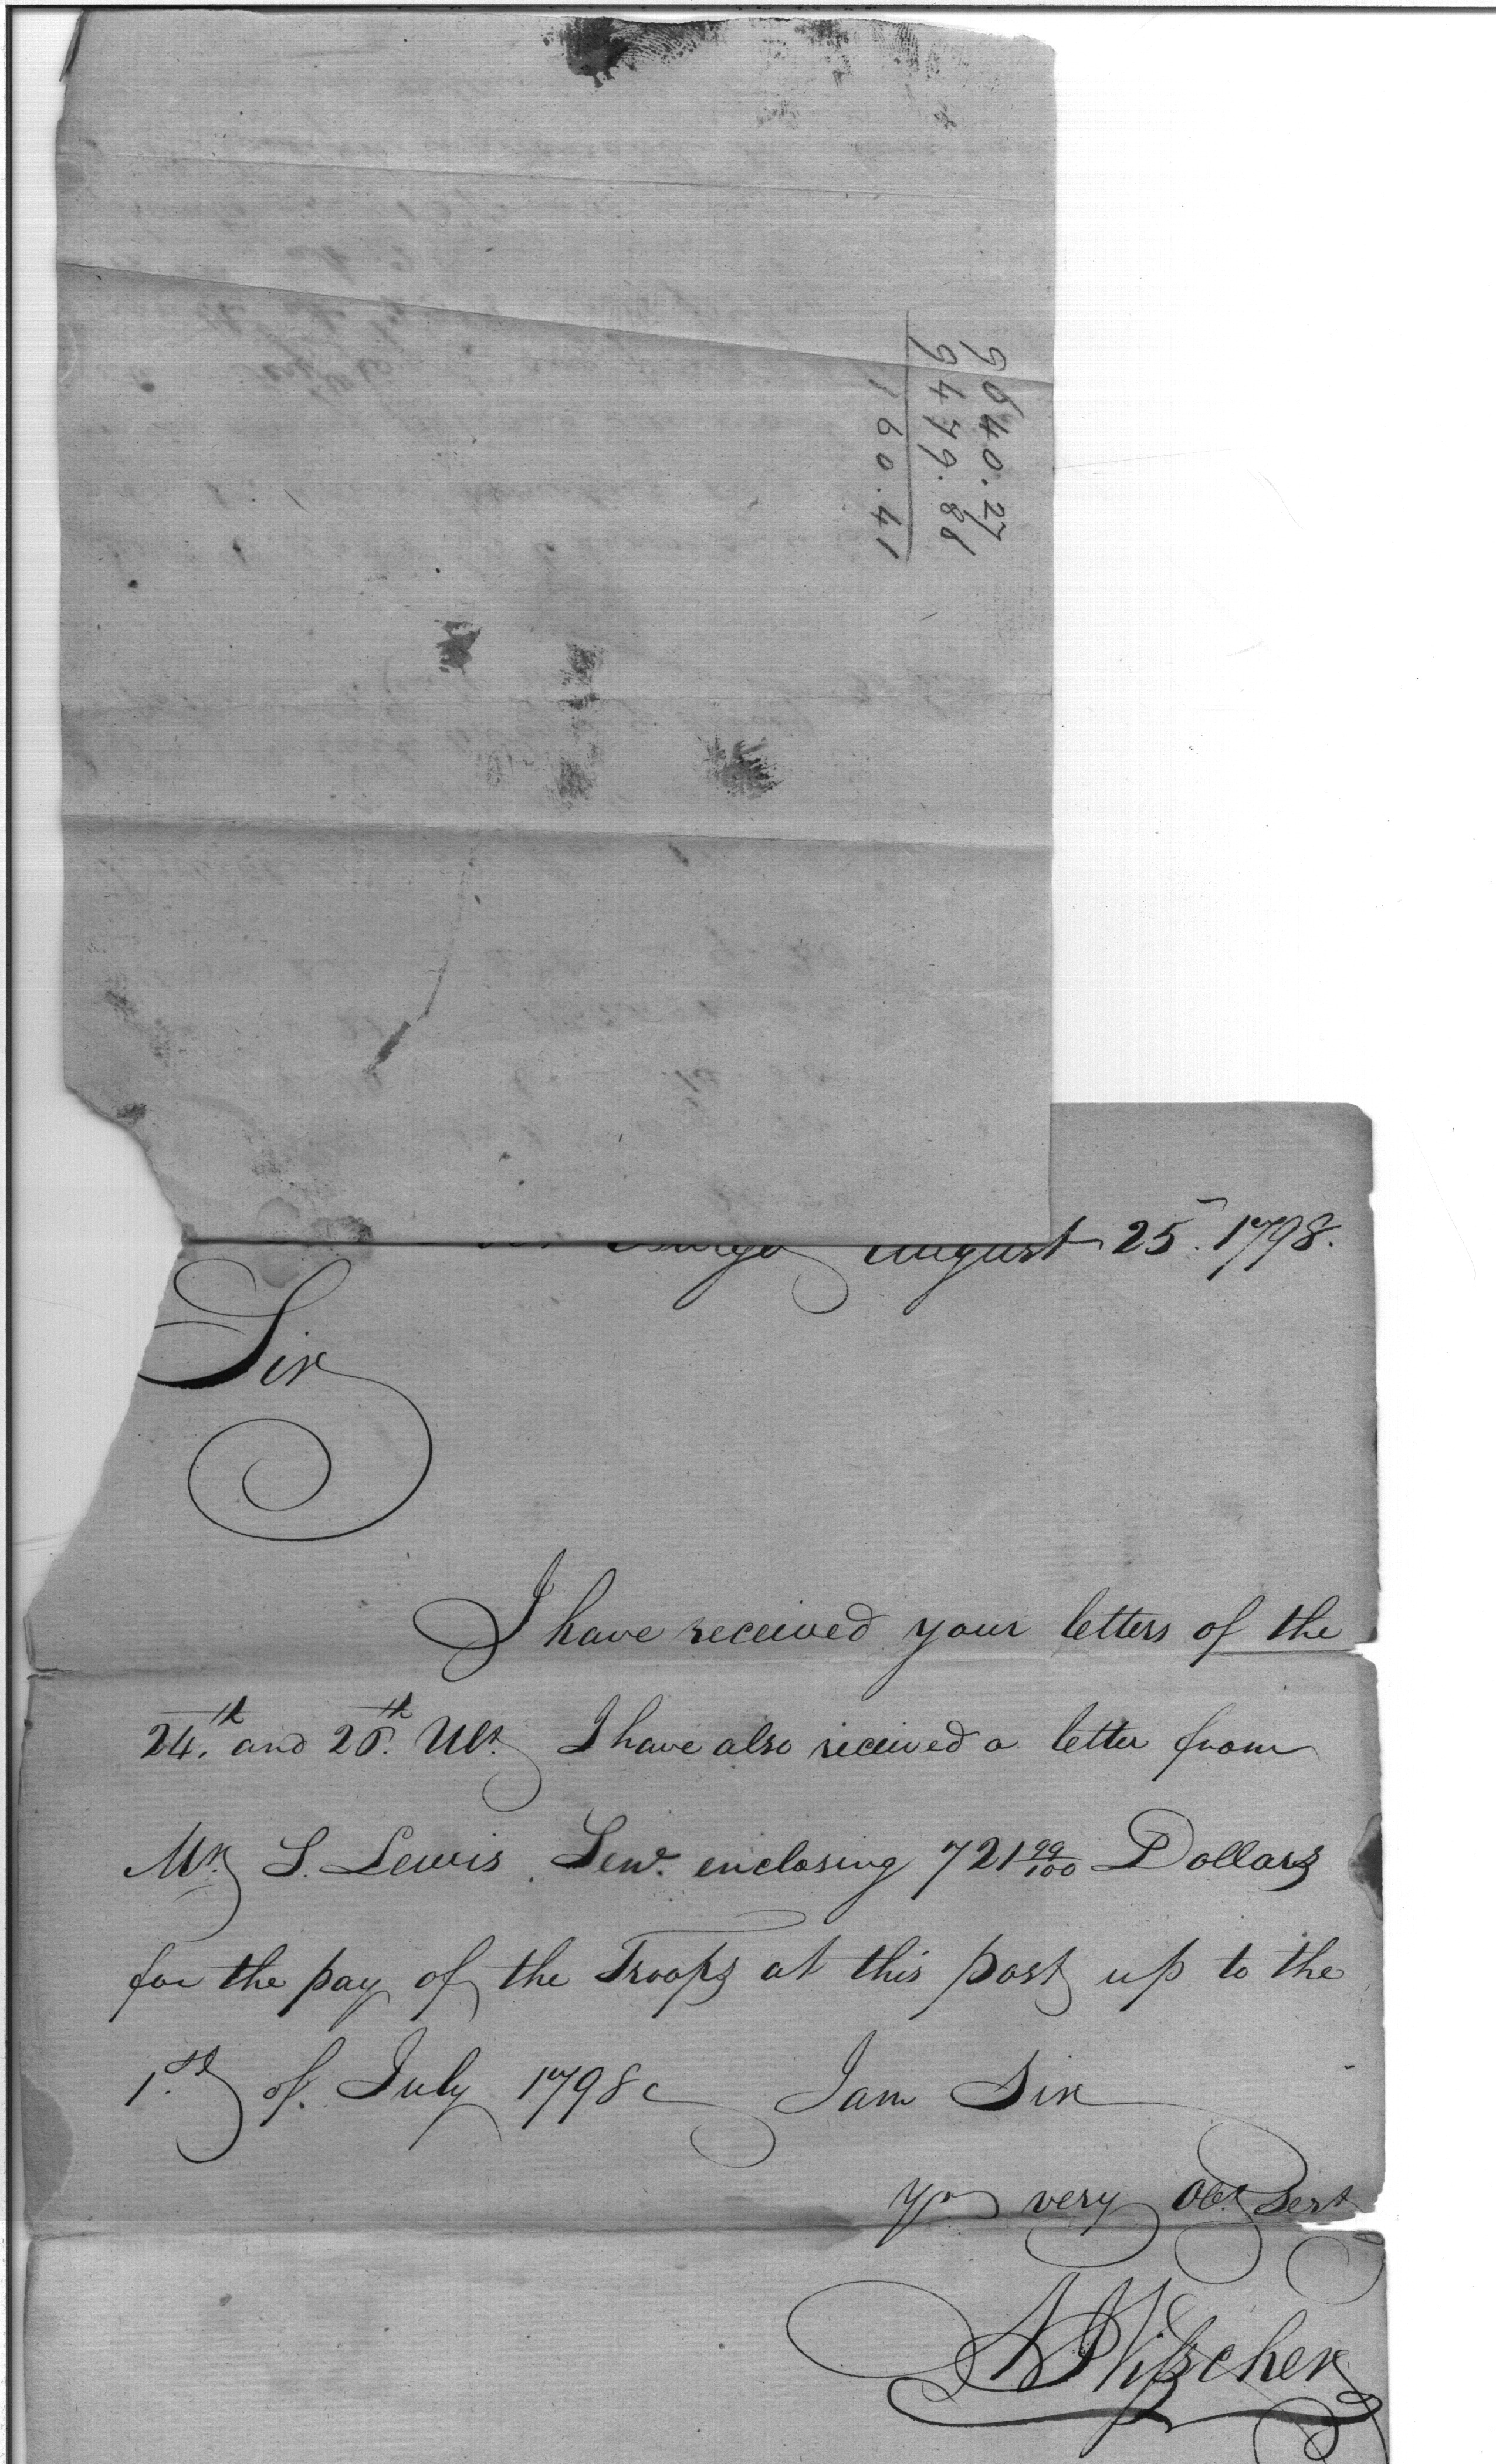 9640.27
9479.86
160.41
August 25. 1798.
Sir
I have received your letters of the
24.th and 26.th Ult. I have also received a letter from
Mr. S. Lewis Senr. enclosing 721 99/100 Dollars
for the pay of the Troops at this post up to the
1.st of July 1798 I am Sir
Yr very Obt Sert